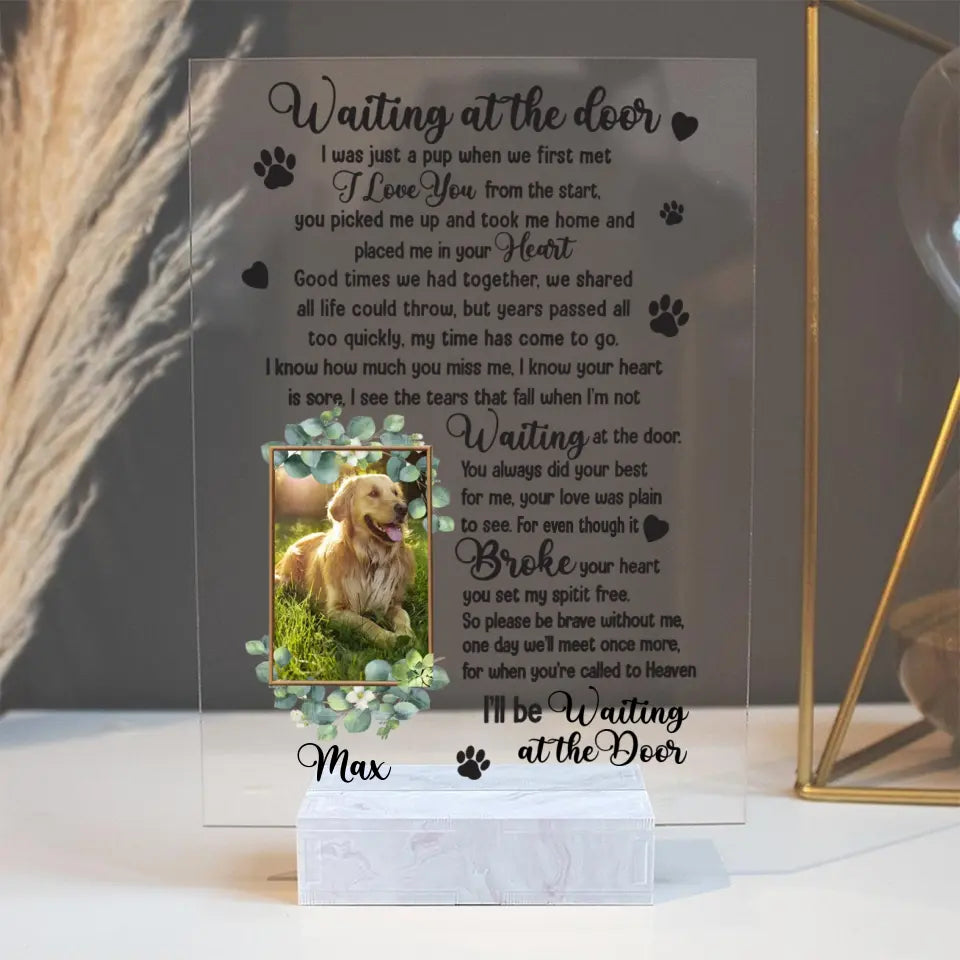 Waiting at the door
I was just a pup when we first met
I Love You from the start,
you picked me up and took me home and
placed me in your Heart
Good times we had together, we shared
all life could throw, but years passed all
too quickly, my time has come to go.
I know how much you miss me, I know your heart
is sore, I see the tears that fall when I'm not
Waiting at the door.
You always did your best
for me, your love was plain
to see. For even though it
Broke your heart
you set my spitit free.
So please be brave without me,
one day we'll meet once more,
for when you're called to Heaven
I'll be Waiting
at the Door
Max